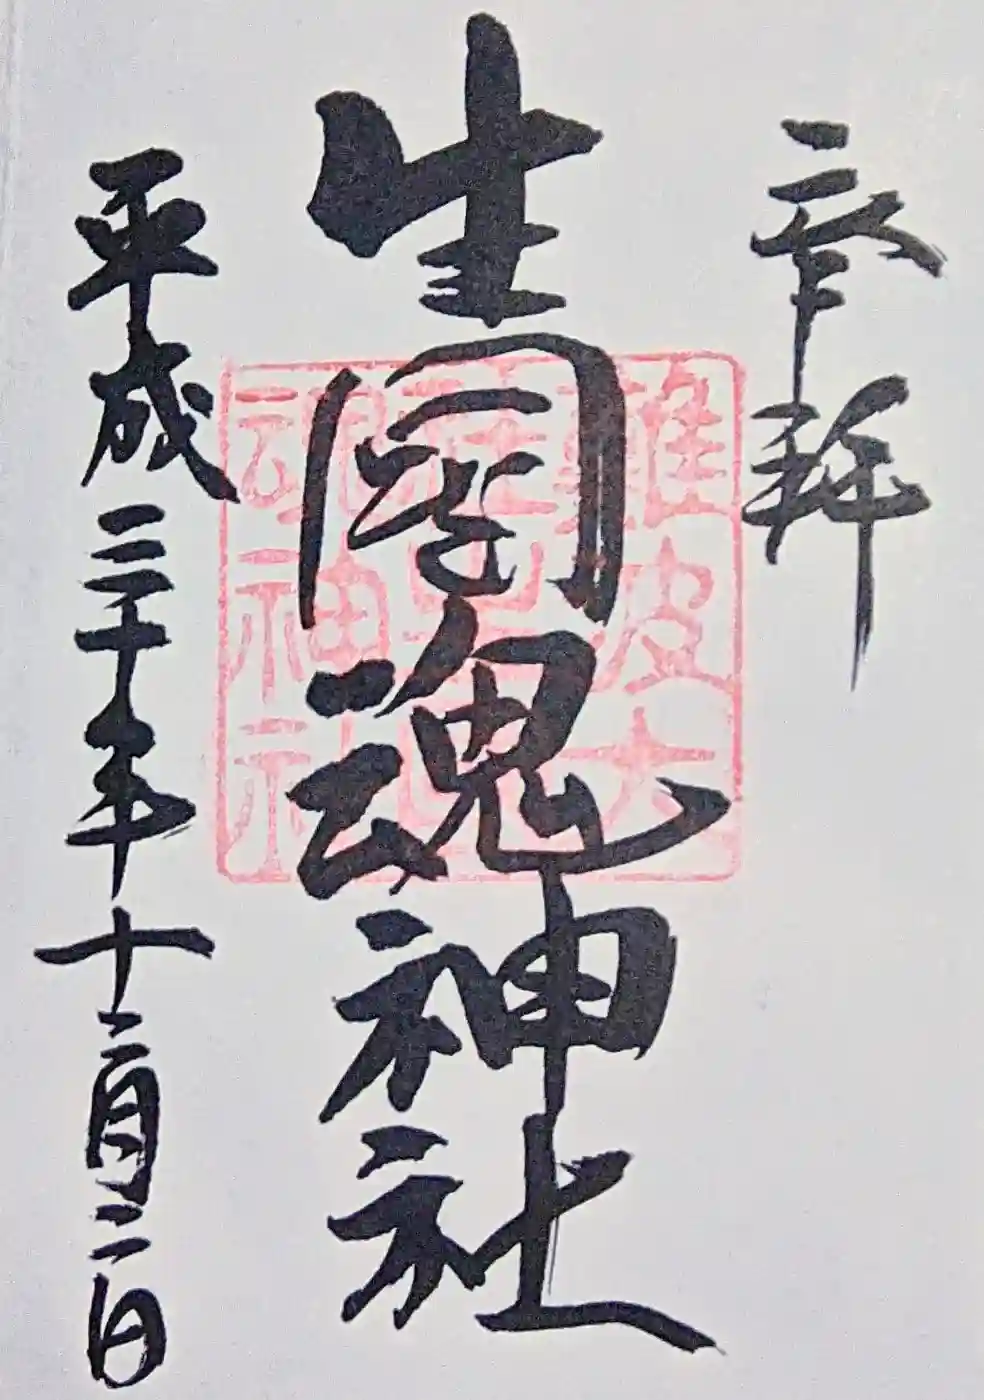 奉拝
生國魂神社
平成三十年十二月二日
難波大
社生國
魂神社